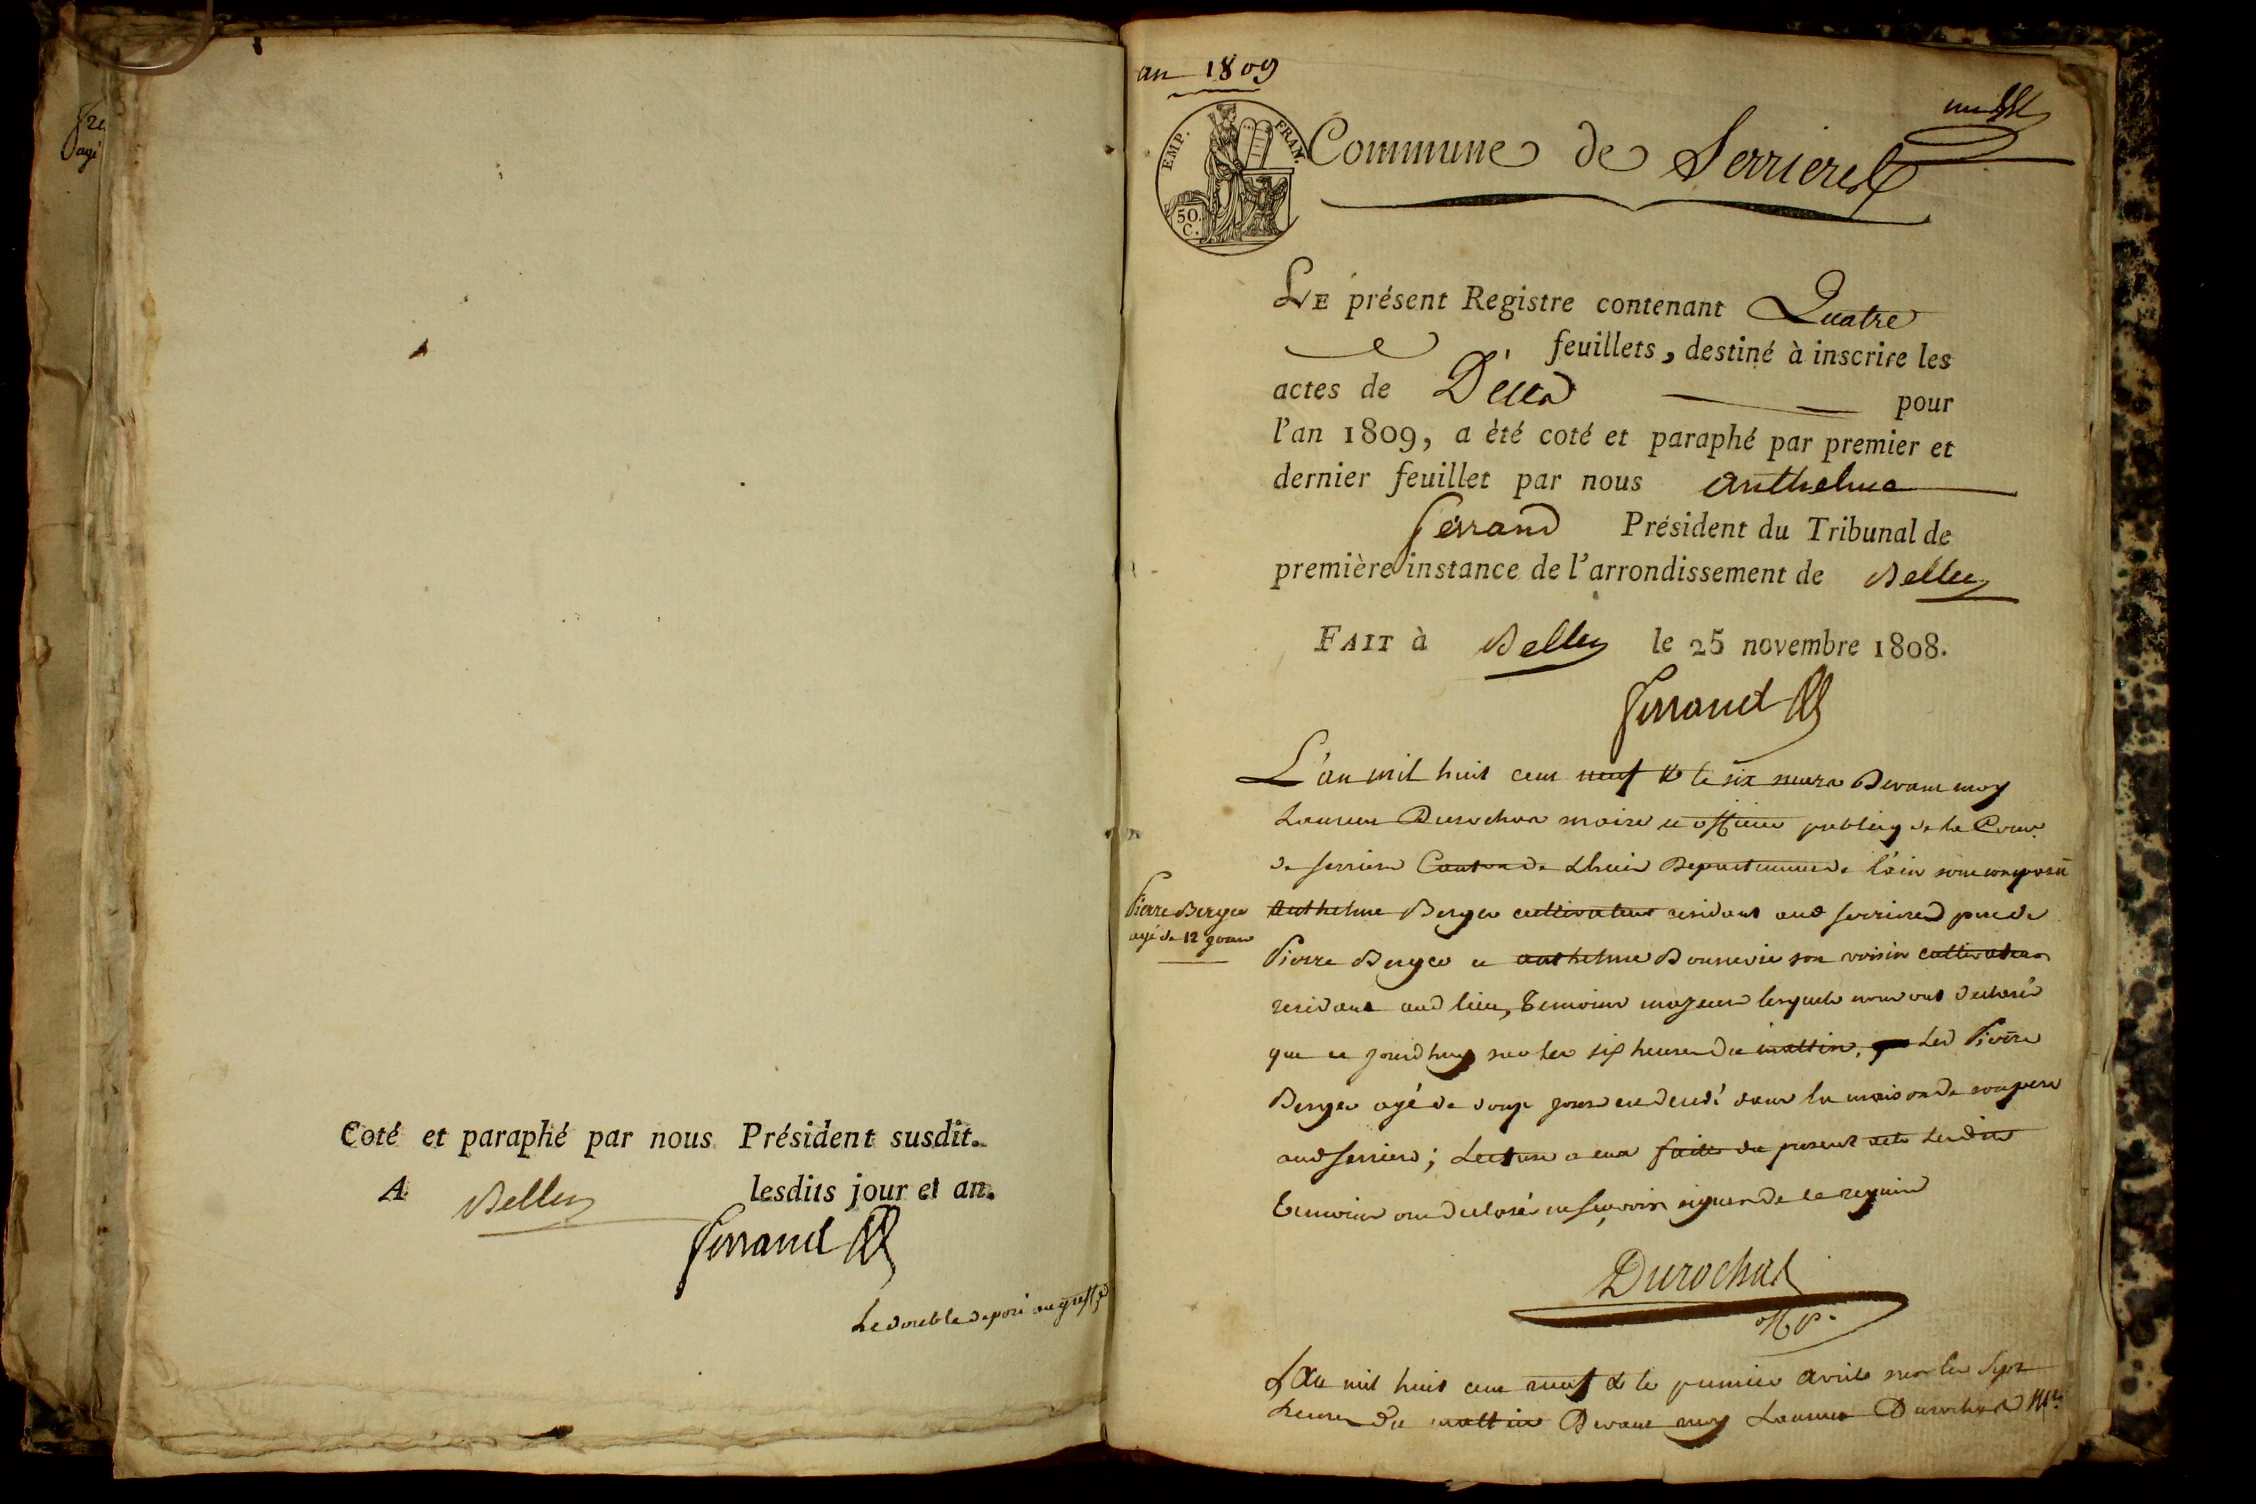 Coté et paraphé par nous Président susdit.
A Belley lesdits jour et an.
Ferrand
Le double deposé au greffe
an 1809
EMP. FRAN.
50.
C.
Commune de Serrieres
LE présent Registre contenant Quatre
feuillets, destiné à inscrire les
actes de Décès pour
l'an 1809, a été coté et paraphé par premier et
dernier feuillet par nous anthelme
ferrand Président du Tribunal de
première instance de l'arrondissement de Belley
FAIT à Belley le 25 novembre 1808.
Ferrand
L'an mil huit cent neuf & le six mars Devant moy
Laurent Durochat maire et officier publicq de la Com.
de serriere Canton de Lhuis Departement de l'ain sont comparu
Pierre Berger
agé de 12 jours
Anthelme Berger cultivateur residant aud serrieres pere de
Pierre Berger et anthelme Bonnevie son voisin cultivateur
residant aud lieu, temoins majeurs lesquels nous ont declarés
que ce jourdhuy sur les six heures du mattin, Led Pierre
Berger agé de douze jours est decedé dans la maison de son pere
aud serriere; Lecture a eux faite du present acte Lesdits
temoins ont declarés ne sçavoir signer de ce requis
Durochat
off. p.
L'an mil huit cent neuf & le premier avril sur les sept
heures du mattin Devant moy Laurent Durochat M.